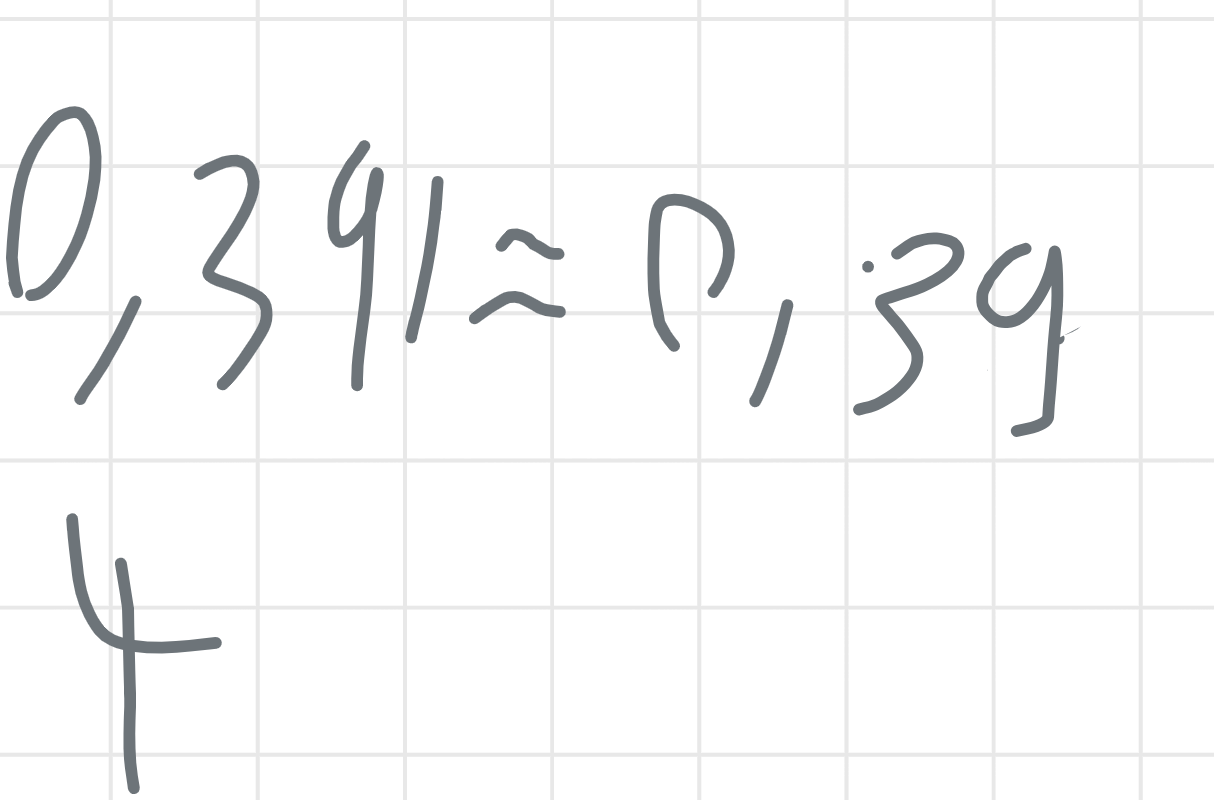 0,391≈0,39
4